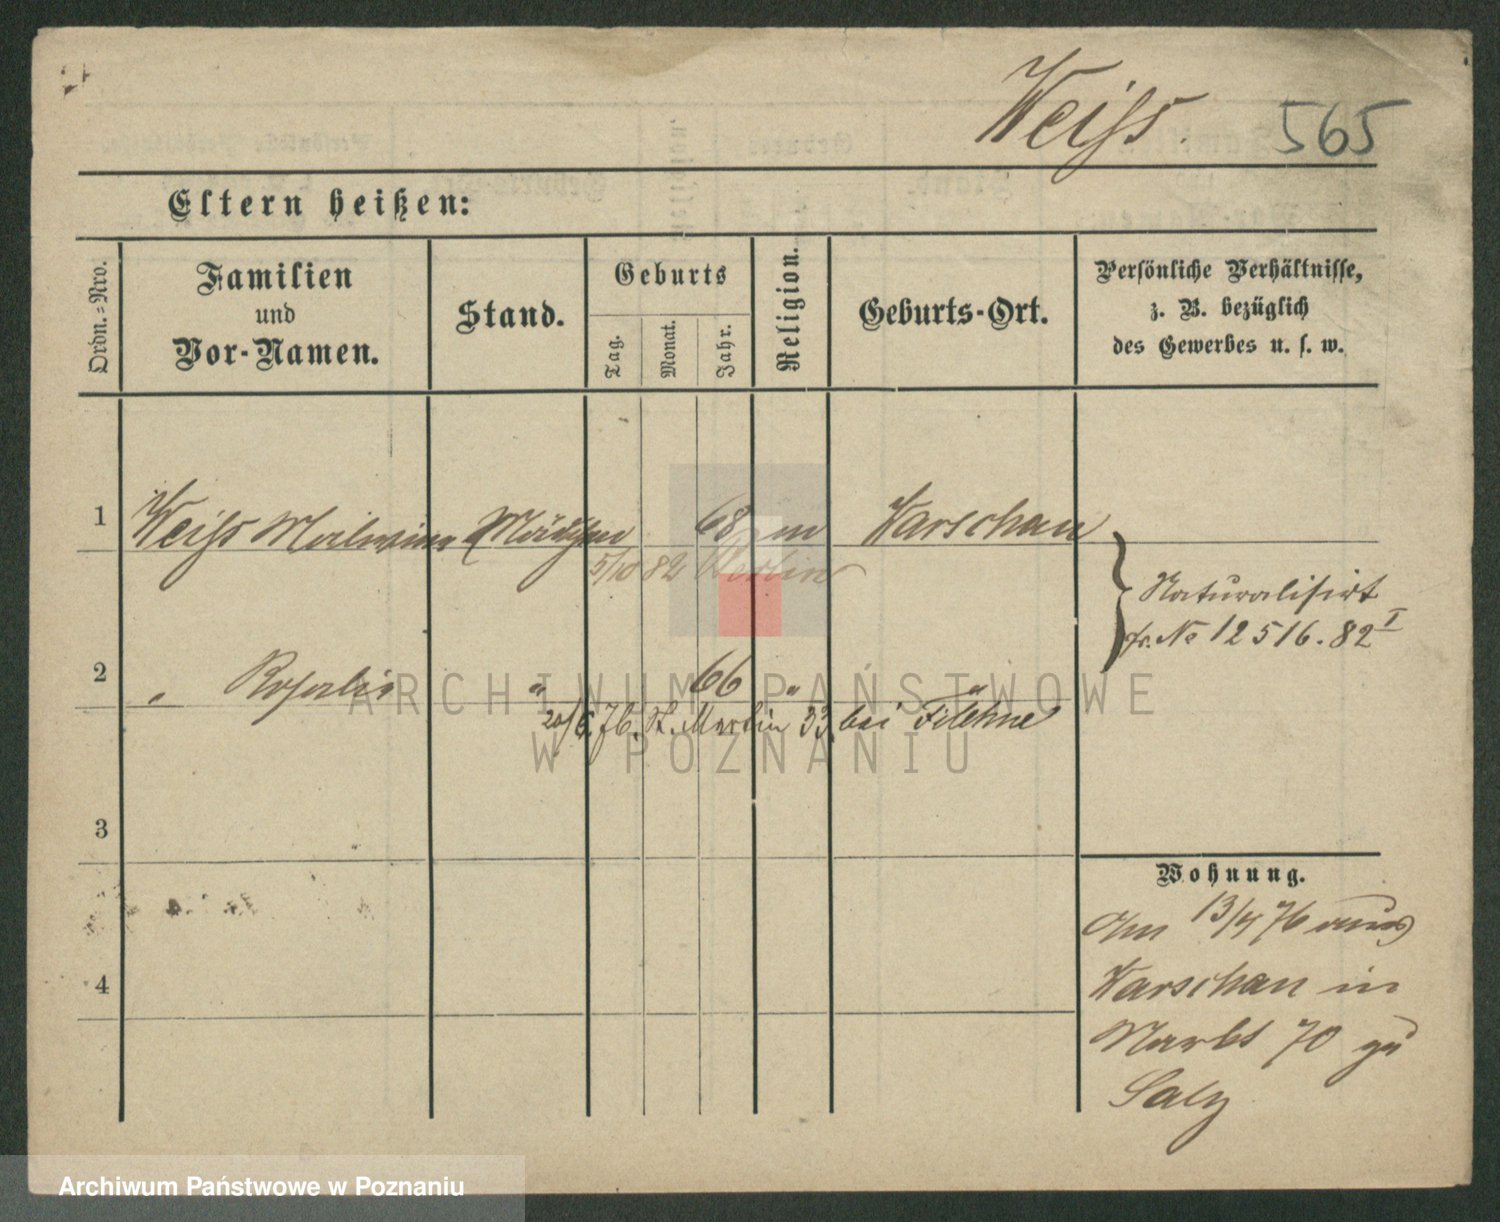 Weiſs. 565
Eltern heißen:
Ordn.=Nro.
Familien
und
Vor-Namen.
Stand.
Geburts
Tag.
Monat.
Jahr.
Religion.
Geburts-Ort.
Persönliche Verhältnisse,
z. B. bezüglich
des Gewerbes u. s. w.
1 Weiſs Malwina Mädchen 68 m Warschau
5/10 82 Berlin
Naturalisirt
fr. No 12516.82 I
2 " Rosalie " 66 " "
20/6.76. St. Martin 33. bei Filehne
3
Wohnung.
Am 13/4 76 aus
Warschau in
4
Markt 70 zu
Salz
ARCHIWUM PAŃSTWOWE
W POZNANIU
Archiwum Państwowe w Poznaniu